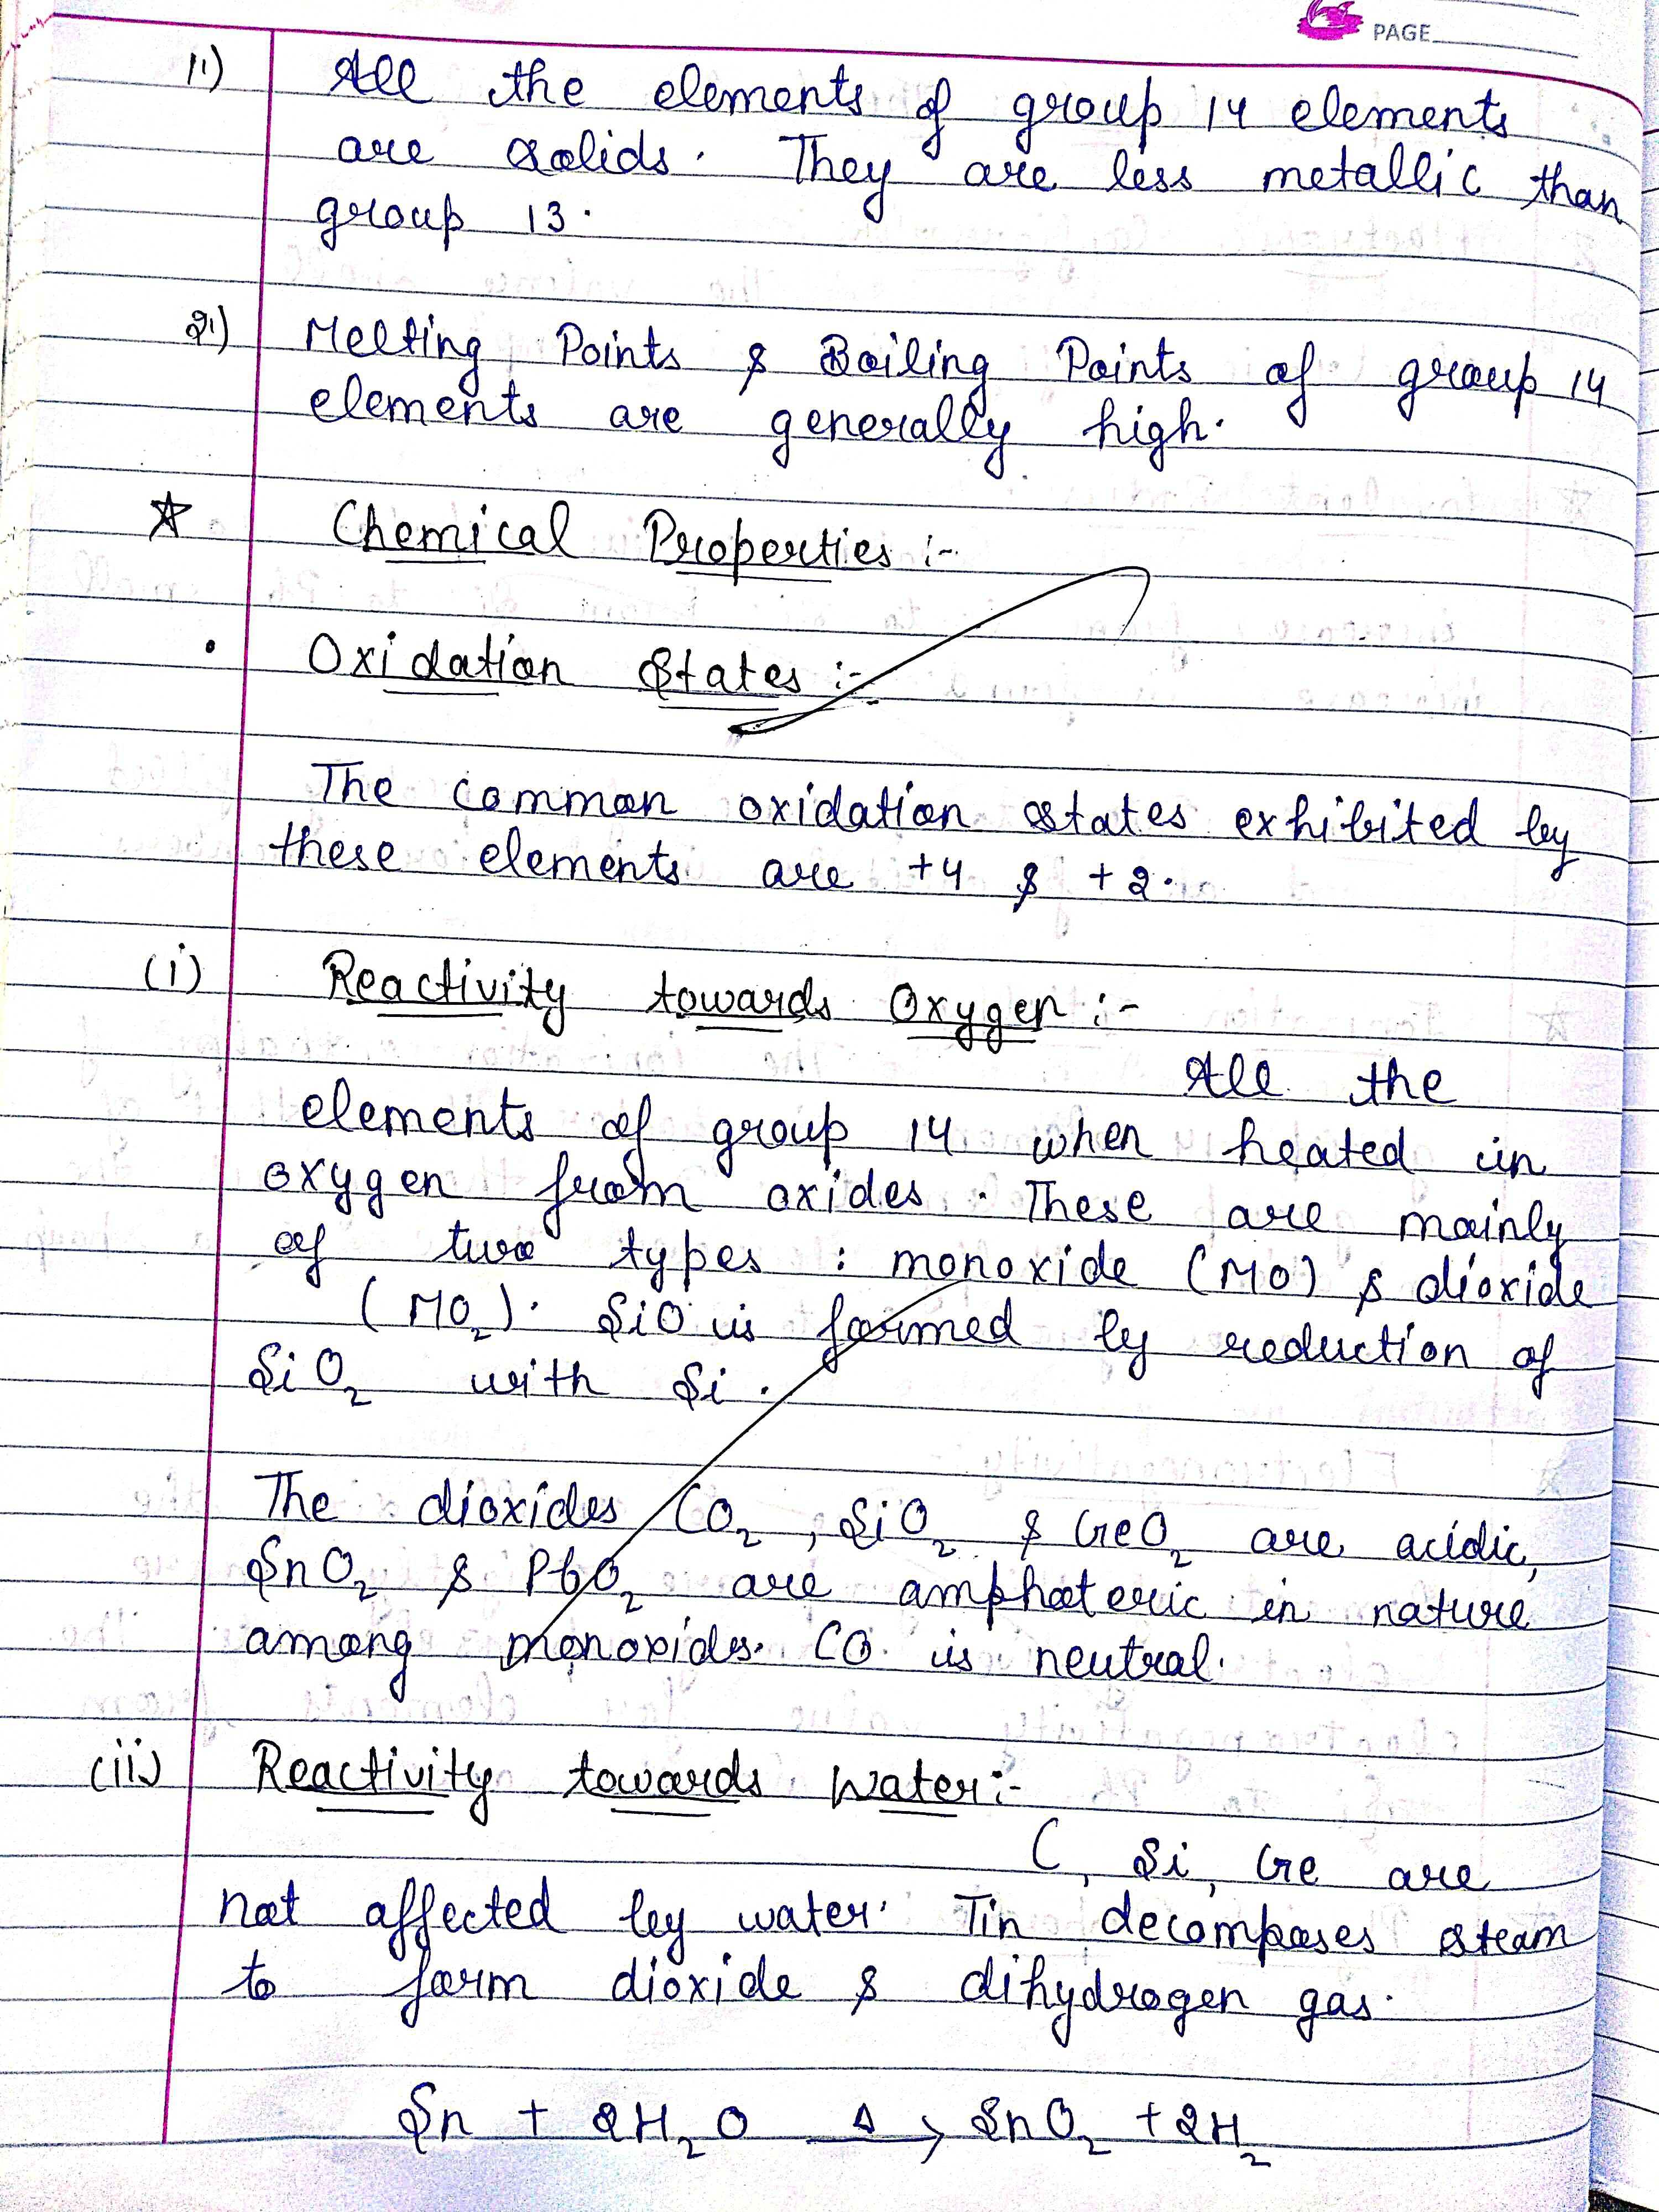 PAGE
1) All the elements of group 14 elements
are solids. They are less metallic than
group 13.
2) Melting Points & Boiling Points of group 14
elements are generally high.
☆ Chemical Properties :-
• Oxidation States :-
The common oxidation states exhibited by
these elements are +4 & +2.
(i) Reactivity towards Oxygen :-
All the
elements of group 14 when heated in
oxygen from oxides. These are mainly
of two types : monoxide (MO) & dioxide
(MO₂). SiO is formed by reduction of
SiO₂ with Si.
The dioxides CO₂, SiO₂ & GeO₂ are acidic,
SnO₂ & PbO₂ are amphoteric in nature
among monoxides. CO is neutral.
(ii) Reactivity towards Water :-
C, Si, Ge are
not affected by water. Tin decomposes steam
to form dioxide & dihydrogen gas.
Sn + 2H₂O —Δ→ SnO₂ + 2H₂